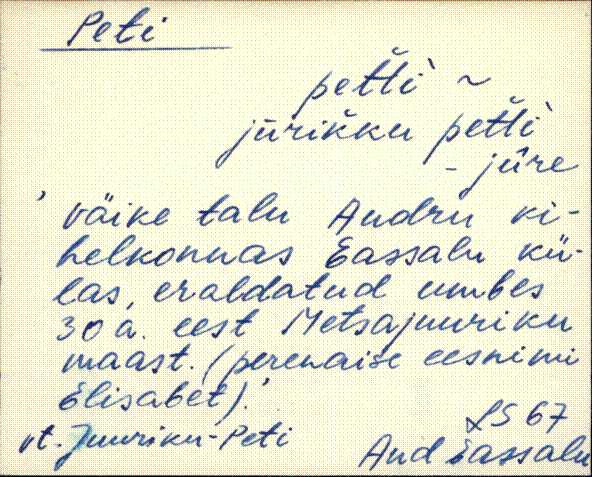 Peti
petti ~
jūrikku petti
- jūre
'väike talu Audru ki-
helkonnas Eassalu kü-
las, eraldatud umbes
30 a. eest Metsajuuriku
maast. (perenaise eesnimi
Elisabet).'
vt. Juuriku-Peti
LS 67
Aud Eassalu